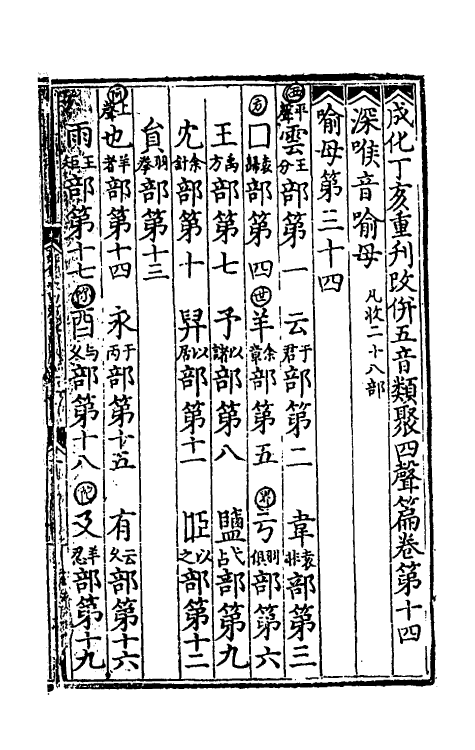 成化丁亥重刋改併五音類聚四聲篇卷第十四
深喉音喻母 凡收二十八部
喻母第三十四
平聲 雲王分部第一 云于君部第二 韋袁非部第三
囗袁歸部第四 羊余章部第五 亏羽俱部第六
王禹方部第七 予以諸部第八 鹽弋占部第九
尣余針部第十 舁以居部第十一 𦣞以之部第十二
貟羽拳部第十三
上聲 也羊者部第十四 永于丙部第十五 有云久部第十六
雨王矩部第十七 酉与久部第十八 廴羊忍部第十九